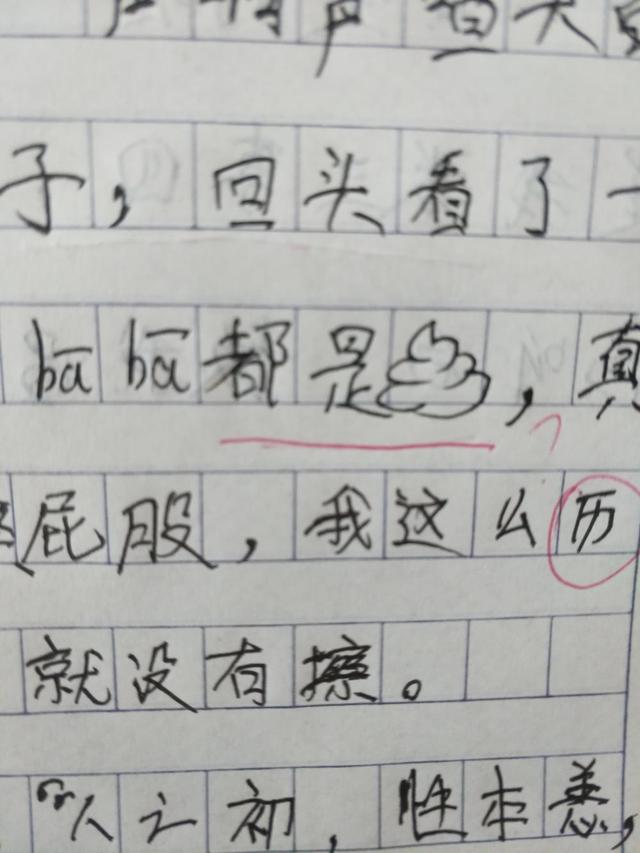 子，回头看了一
bā bā都是，真
屁股，我这么历
就没有擦。
“人之初，性本善，